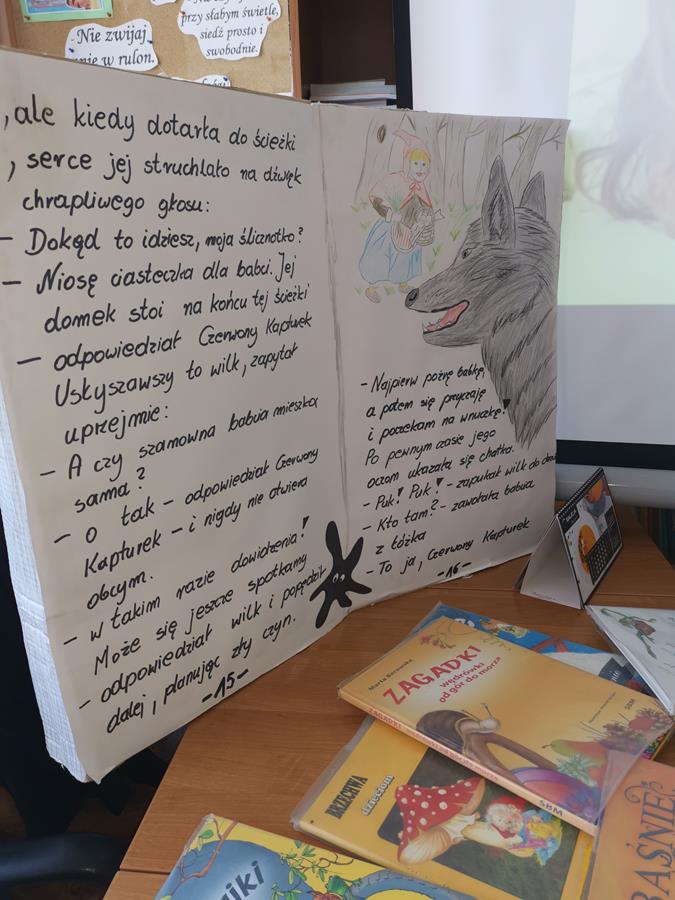 - Nie zwijaj
mnie w rulon.
przy słabym świetle,
siedź prosto i
swobodnie.
, ale kiedy dotarła do ścieżki
, serce jej struchlało na dźwięk
chrapliwego głosu:
- Dokąd to idziesz, moja ślicznotko?
- Niosę ciasteczka dla babci. Jej
domek stoi na końcu tej ścieżki
- odpowiedział Czerwony Kapturek
Usłyszawszy to wilk, zapytał
uprzejmie:
- A czy szanowna babcia mieszka
sama?
- o tak - odpowiedział Czerwony
Kapturek - i nigdy nie otwiera
obcym.
- w takim razie dowidzenia!
Może się jeszcze spotkamy
- odpowiedział wilk i popędził
dalej, planując zły czyn.
-15-
- Najpierw pożrę babkę,
a potem się przyczaję
i poczekam na wnuczkę!
Po pewnym czasie jego
oczom ukazała się chatka.
- Puk! Puk! - zapukał wilk do drzwi
- Kto tam? - zawołała babcia
z łóżka
- To ja, Czerwony Kapturek
-16-
Marta Berowska
ZAGADKI
wędrówki
od gór do morza
SBM
SBM
BRZECHWA
dzieciom
BAŚNIE